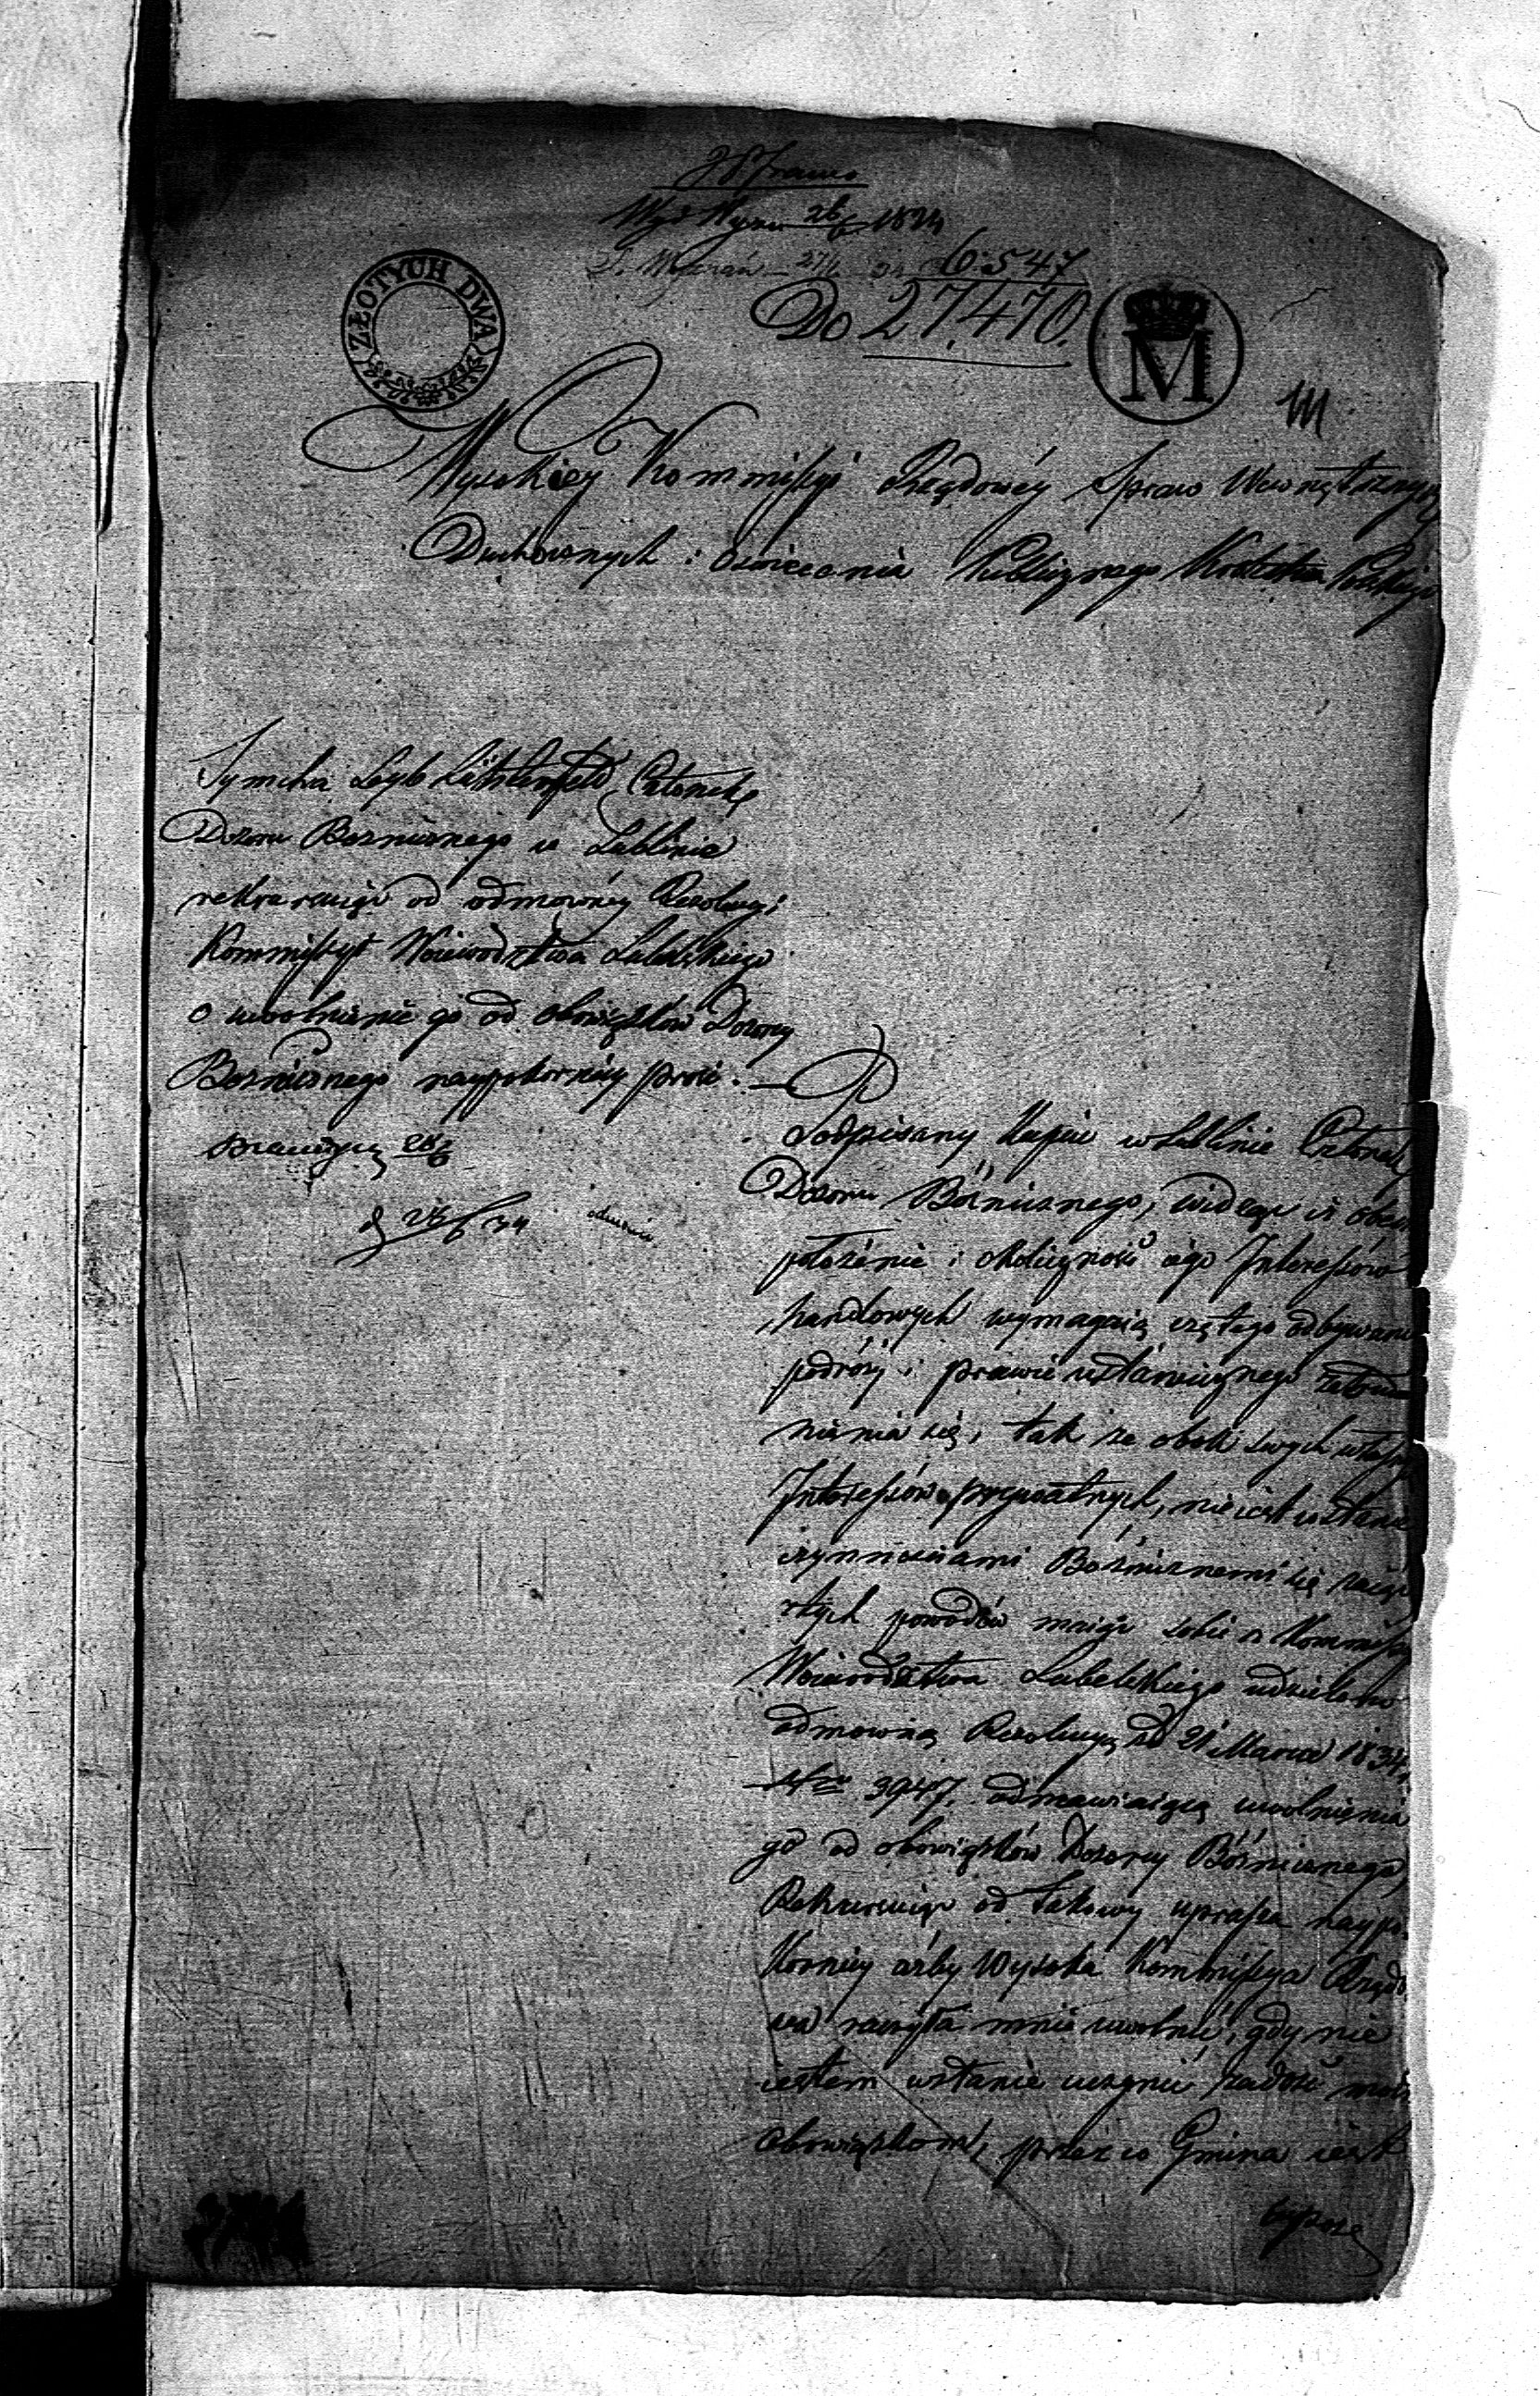 26/6 1834
6547
Do 27,470.
ZŁOTYCH DWA
M
111
Wysokiey Kommissyi Rządowéy Spraw Wewnętrznych
Duchownych i Oświecenia Publicznego Królestwa Polskiego
Symcha Leyb Członek
Dozoru Bożnicznego w Lublinie
rekuruiąc od odmownéy Rezolucyi
Kommissyi Woiewództwa Lubelskiego
o uwolnienie go od obowiązków Dozorcy
Bożnicznego naypokorniéy prosi. —
28/6
odmówić
Podpisany Kupiec w Lublinie Członek
Dozoru Bóżnicznego, widząc iż
położenie i okoliczność iego Interessów
handlowych wymagaią częstego odbywania
podróży i prawie ustawicznego
nienia się, tak że obok swych własnych
Interessów prywatnych, nie iest w stanie
czynnościami Bożnicznemi się
z tych powodów maiąc sobie z Kommissyi
Woiewództwa Lubelskiego udzieloną
odmowną Rezolucyą d 21 Marca 1834 r.
Nro 3947, odmawiaiącą uwolnienia
go od obowiązków Dozorcy Bóżnicznego,
Rekuruiąc od takowéy uprasza naypo-
korniéy ażeby Wysoka Kommissya Rządo
wa raczyła mnie uwolnić, gdy nie
iestem w stanie uczynić zadość moim
obowiązkom, przez co Gmina iest